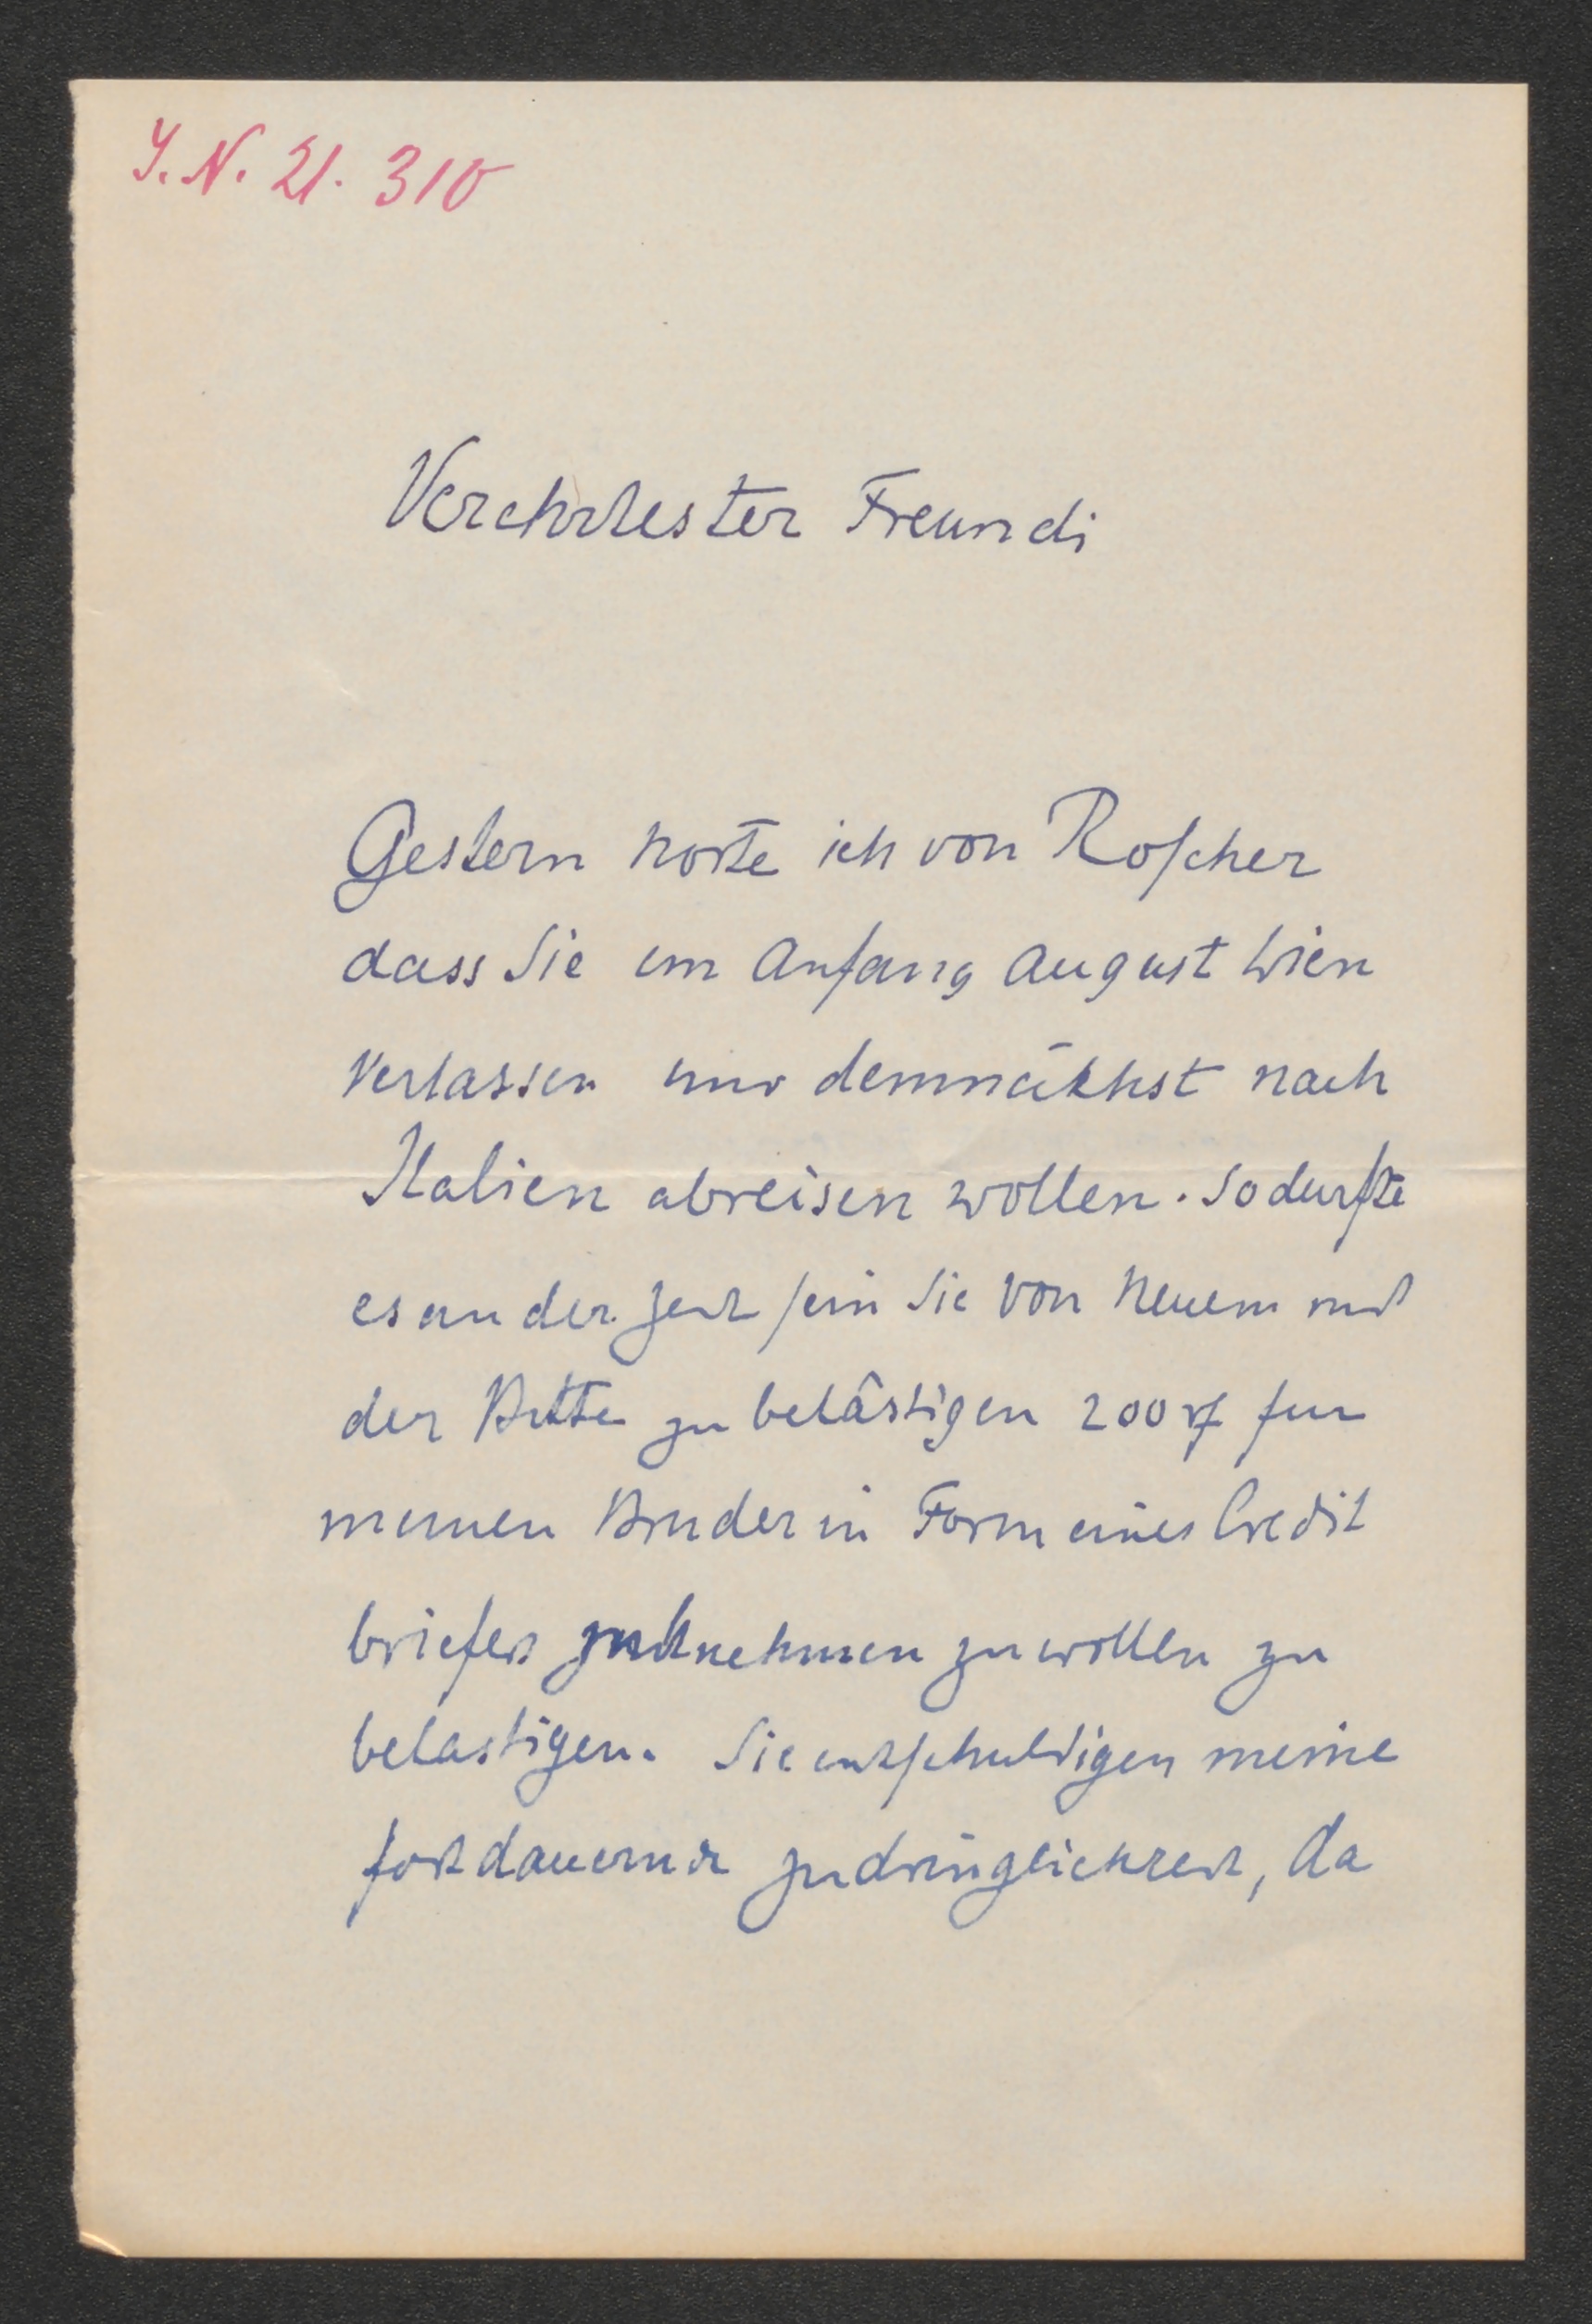 J. N. 21. 310
Verehrtester Freund!
Gestern horte ich von Roscher
dass Sie im Anfang August Wien
Verlassen und demnächst nach
Italien abreisen wollen. So durfte
es an der Zeit sein Sie von Neuem mit
der Bitte zu belästigen 200 f für
meinen Bruder in Form eines Credit
briefes mitnehmen zu wollen zu
belastigen. Sie entschuldigen meine
fortdauernde Zudringlichkeit, da